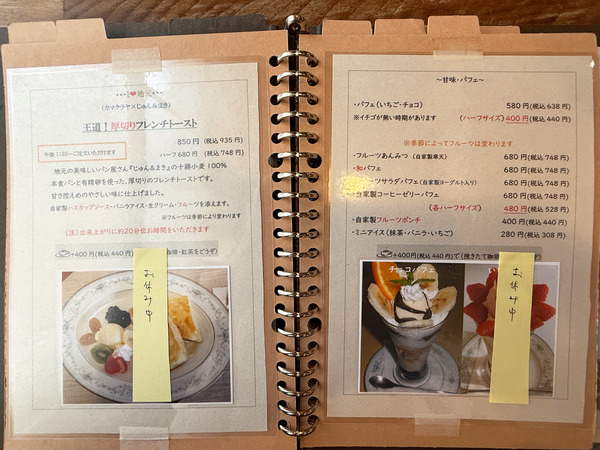 I❤地元
(カマクラヤ×じゅん&まき)
王道！厚切りフレンチトースト
850円(税込935円)
午後1:30~ご注文いただけます
ハーフ 680円(税込748円)
地元の美味しいパン屋さん『じゅん&まき』の十勝小麦100%
本食パンと有精卵を使った、厚切りのフレンチトーストです。
甘さ控えめのやさしい味に仕上げました。
自家製ハスカップソース・バニラアイス・生クリーム・フルーツを添えます。
※フルーツは季節により変わります
(注)出来上がりに約20分位お時間をいただきます
+400円(税込440円)
珈琲・紅茶をどうぞ
お休み中
~甘味・パフェ~
・パフェ(いちご・チョコ) 580円(税込638円)
※イチゴが無い時期があります (ハーフサイズ) 400円(税込440円)
※季節によってフルーツは変わります
・フルーツあんみつ(自家製寒天) 680円(税込748円)
・和パフェ 680円(税込748円)
ーツサラダパフェ(自家製ヨーグルト入り) 680円(税込748円)
自家製コーヒーゼリーパフェ 680円(税込748円)
(各ハーフサイズ) 480円(税込528円)
・自家製フルーツポンチ 400円(税込440円)
・ミニアイス(抹茶・バニラ・いちご) 280円(税込308円)
+400円(税込440円)で(挽きたて珈琲
チョコパフェ
い
お休み中